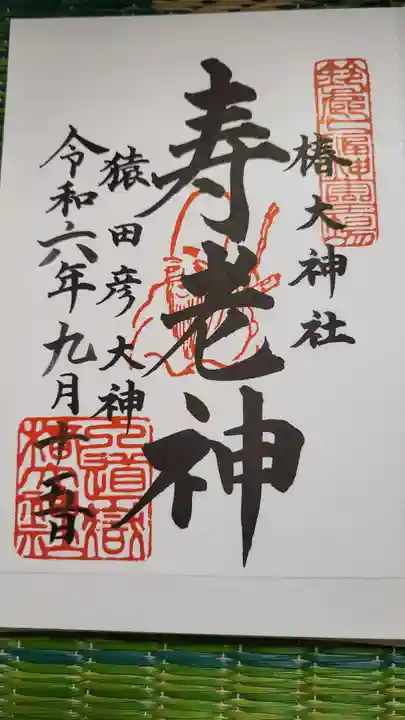 椿大神社
寿老神
猿田彦大神
令和六年九月十五日